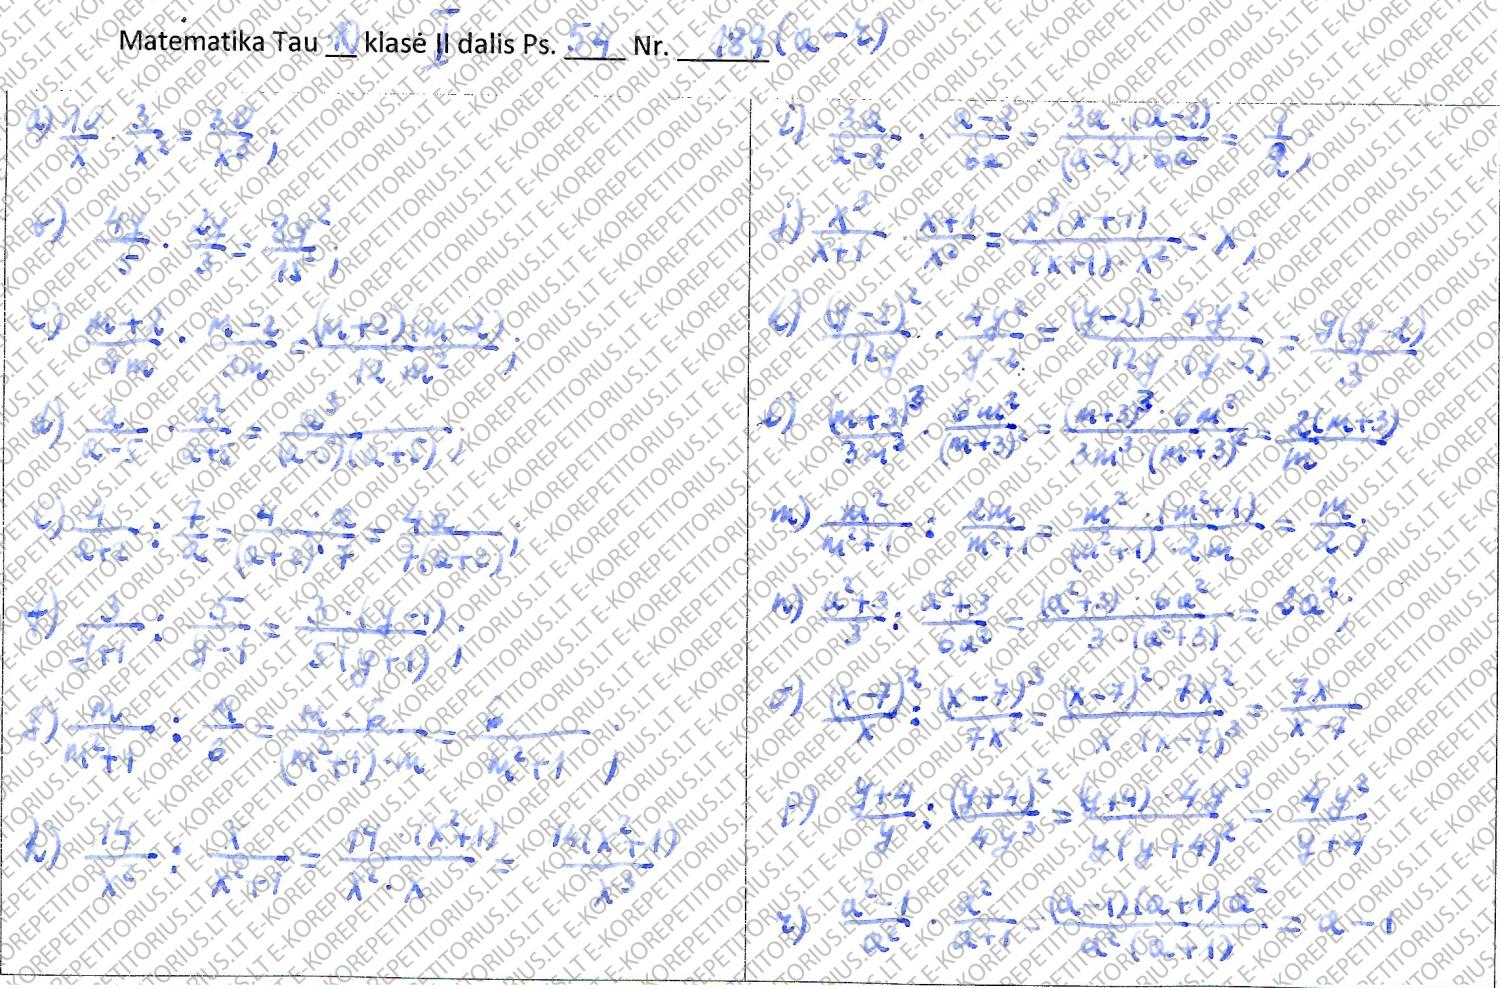 Matematika Tau 10 klasė II dalis Ps. 54 Nr. 184 (a-r)
a) 10/x · 3/x² = 30/x³ ;
b) 4y/5 · 2y/3 = 8y²/15 ;
c) (m+2)/4m · (m-2)/3m = (m+2)(m-2)/12m² ;
d) a/(a-5) · a²/(a+5) = a³/(a-5)(a+5) ;
e) 4/(a+2) : 7/a = 4·a/(a+2)·7 = 4a/7(a+2) ;
f) 3/(y+1) : 5/(y-1) = 3·(y-1)/5(y+1) ;
g) m/(m²+1) : m/6 = m·6/(m²+1)·m = 6/(m²+1) ;
h) 14/x² : x/(x²+1) = 14·(x²+1)/x²·x = 14(x²+1)/x³
i) 3a/(a-2) · (a-2)/6a = 3a·(a-2)/(a-2)·6a = 1/2 ;
j) x³/(x+1) · (x+1)/x² = x³(x+1)/(x+1)·x² = x ;
k) (y-2)²/12y · 4y²/(y-2) = (y-2)²·4y²/12y·(y-2) = y(y-2)/3
l) (m+3)³/3m³ · 6m²/(m+3)² = (m+3)³·6m²/3m³·(m+3)² = 2(m+3)/m
m) m²/(m²+1) : 2m/(m²+1) = m²·(m²+1)/(m²+1)·2m = m/2 ;
n) (a²+3)/3 : (a²+3)/6a² = (a²+3)·6a²/3·(a²+3) = 2a² ;
o) (x-7)²/x : (x-7)³/7x² = (x-7)²·7x²/x·(x-7)³ = 7x/(x-7)
p) (y+4)/y : (y+4)²/4y³ = (y+4)·4y³/y(y+4)² = 4y²/(y+4)
r) (a²-1)/a² · a²/(a+1) = (a-1)(a+1)a²/a²(a+1) = a-1
E-KOREPETITORIUS.LT